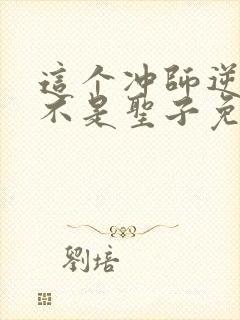 這个冲師逆
不是聖子免
劉培